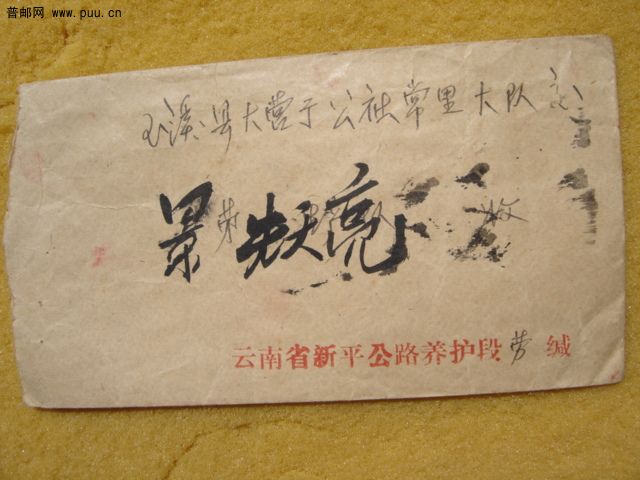 普邮网 www.puu.cn
玉溪县大营于公社常里大队
景先亮
收
云南省新平公路养护段劳 缄